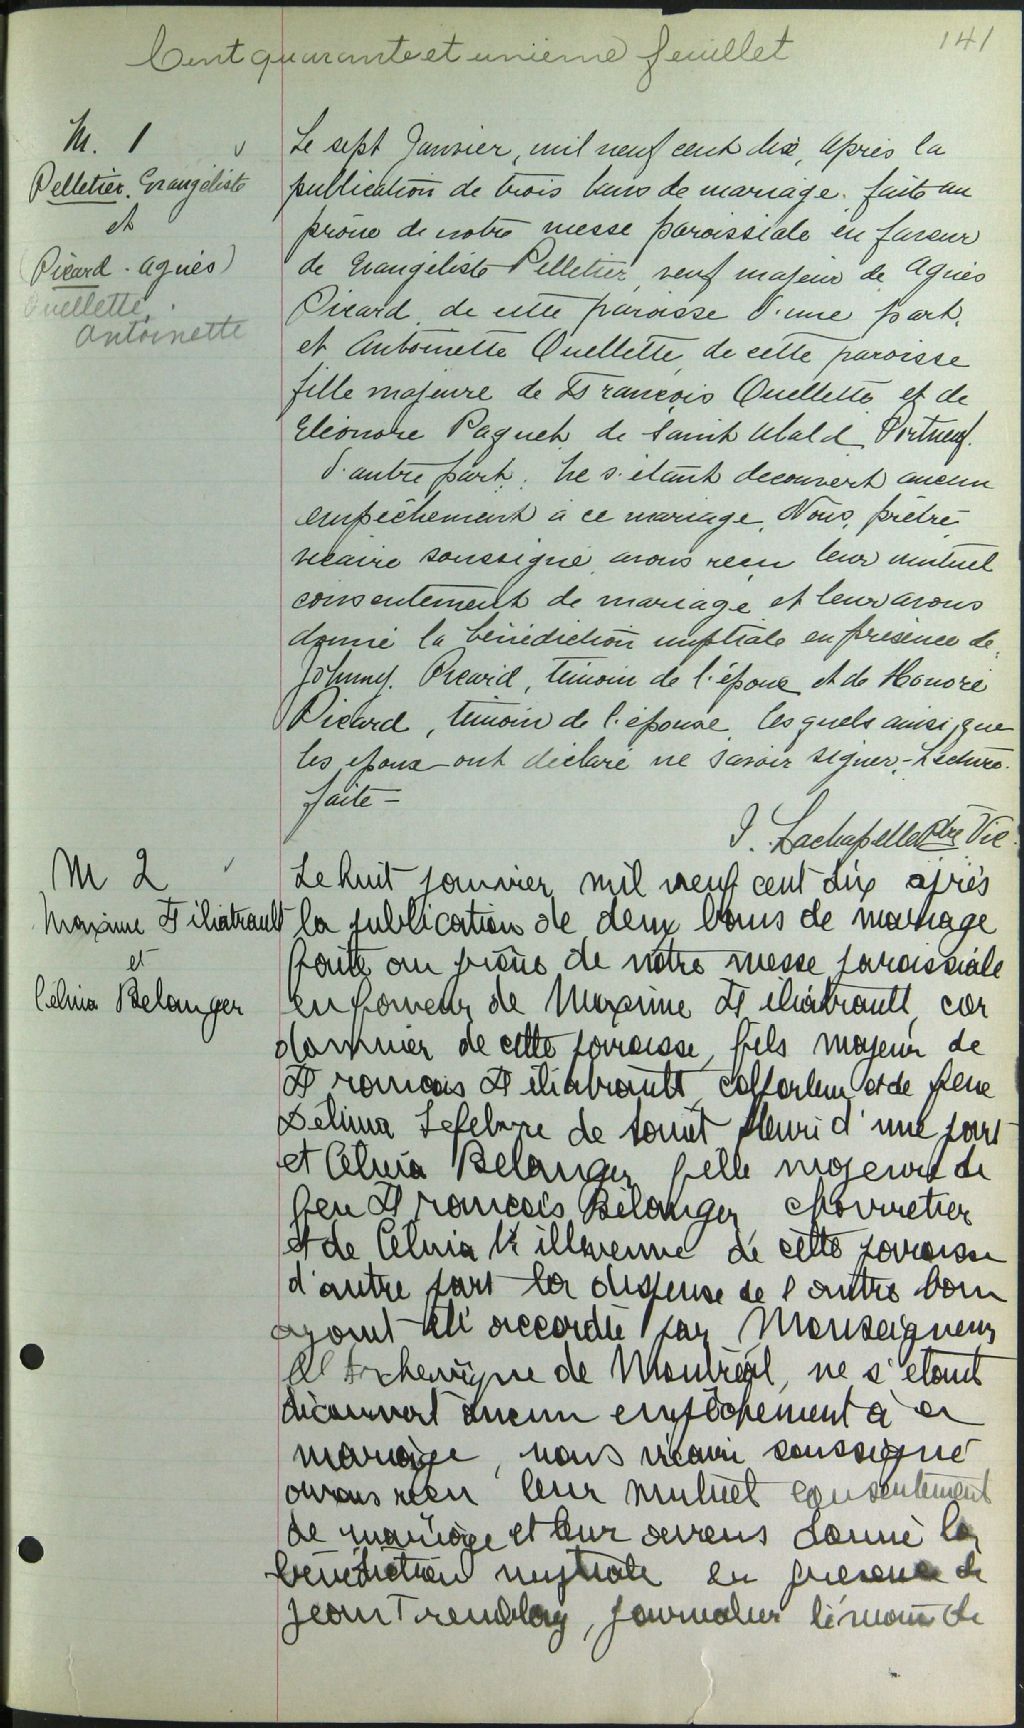 Cent quarante et unième feuillet
141
M. 1
Pelletier. Evangéliste
et
(Picard. Agnès)
Ouellette.
Antoinette
Le sept Janvier, mil neuf cent dix, après la
publication de trois bans de mariage. faite au
prône de notre messe paroissiale en faveur
de Evangéliste Pelletier, veuf majeur de Agnès
Picard, de cette paroisse d'une part.
et Antoinette Ouellette, de cette paroisse
fille majeure de François Ouellette et de
Eléonore Paquet de Saint Ubald, Portneuf.
d'autre part. Ne s'étant découvert aucun
empêchement à ce mariage, Nous, prêtre
vicaire soussigné, avons reçu leur mutuel
consentement de mariage et leur avons
donné la bénédiction nuptiale en présence de
Johnny. Picard, témoin de l'époux et de Honoré
Picard, témoin de l'épouse, lesquels ainsi que
les époux ont déclaré ne savoir signer. - Lecture
faite -
J. Lachapelle Ptre Vic.
M 2
Maxime Filiatrault
et
Célina Belanger
Le huit janvier mil neuf cent dix après
la publication de deux bans de mariage
faite au prône de notre messe paroissiale
en faveur de Maxime Filiatrault, cor
donnier de cette paroisse, fils majeur de
François Filiatrault, colporteur et de feue
Délima Lefebvre de Saint Henri d'une part
et Célina Belanger fille majeure de
feu François Bélanger charretier
et de Célina Villeneuve de cette paroisse
d'autre part la dispense de l'autre ban
ayant été accordée par Monseigneur
l'Archevêque de Montréal, ne s'étant
découvert aucun empêchement à ce
mariage, nous vicaire soussigné
avons reçu leur mutuel consentement
de mariage et leur avons donné la
bénédiction nuptiale en présence de
Jean Tremblay, journalier témoin de